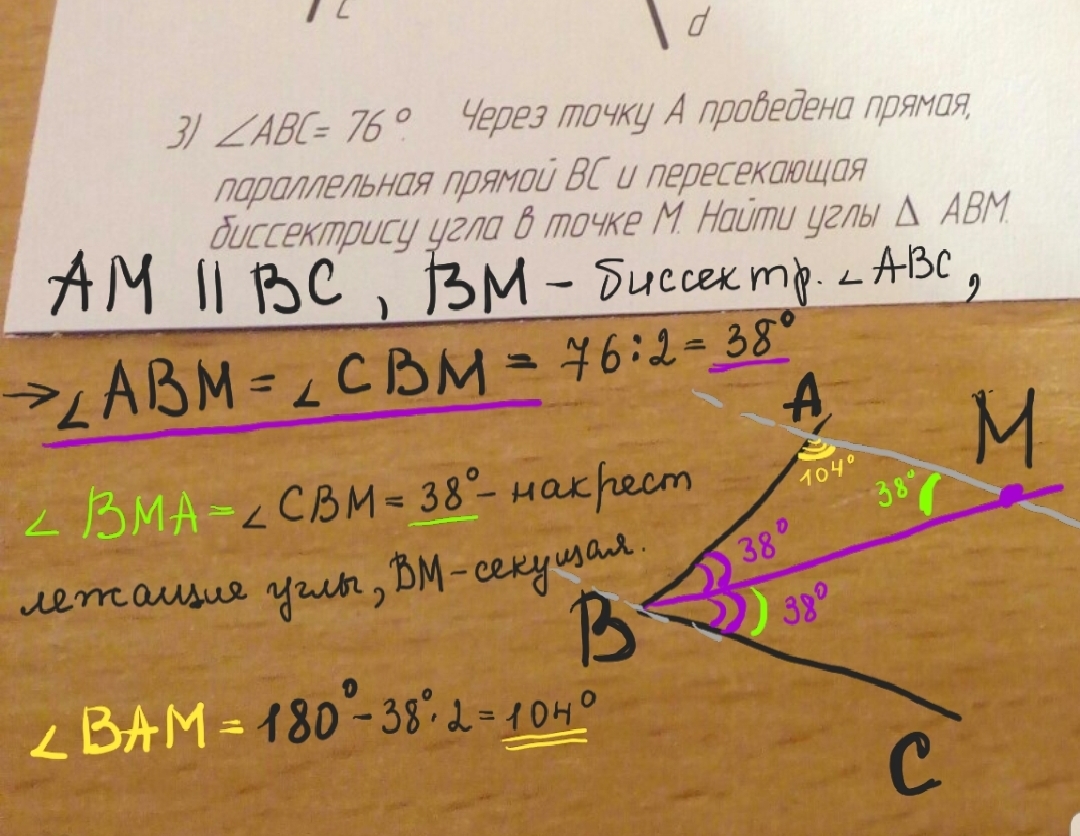 c
d
3) ∠ABC= 76°. Через точку A проведена прямая,
параллельная прямой BC и пересекающая
биссектрису угла в точке M. Найти углы Δ ABM.
AM || BC, BM - биссектр. ∠ABC,
→∠ABM = ∠CBM = 76:2 = 38°
∠BMA = ∠CBM = 38° - накрест
лежащие углы, BM - секущая.
∠BAM = 180° - 38°·2 = 104°
A
M
104°
38°
38°
38°
B
C